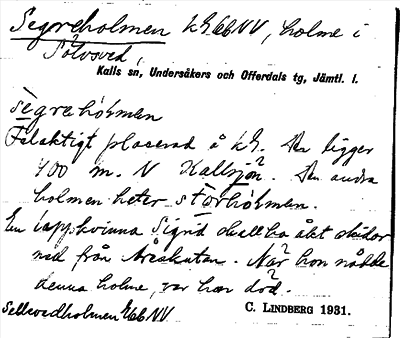 Segreholmen k3.66NV, holme i
Sölvsved,
Kalls sn, Undersåkers och Offerdals tg, Jämtl. l.
sègrehòḷmen
Felaktigt placerad å k3. Den ligger
400 m. N Kallsjön. Den andra
holmen heter stòrhòḷmen.
En lappkvinna Sigrid skall ha åkt skidor
ned från Åreskutan. När hon nådde
denna holme, var hon död.
Sellsvedholmen k66NV C. LINDBERG 1931.